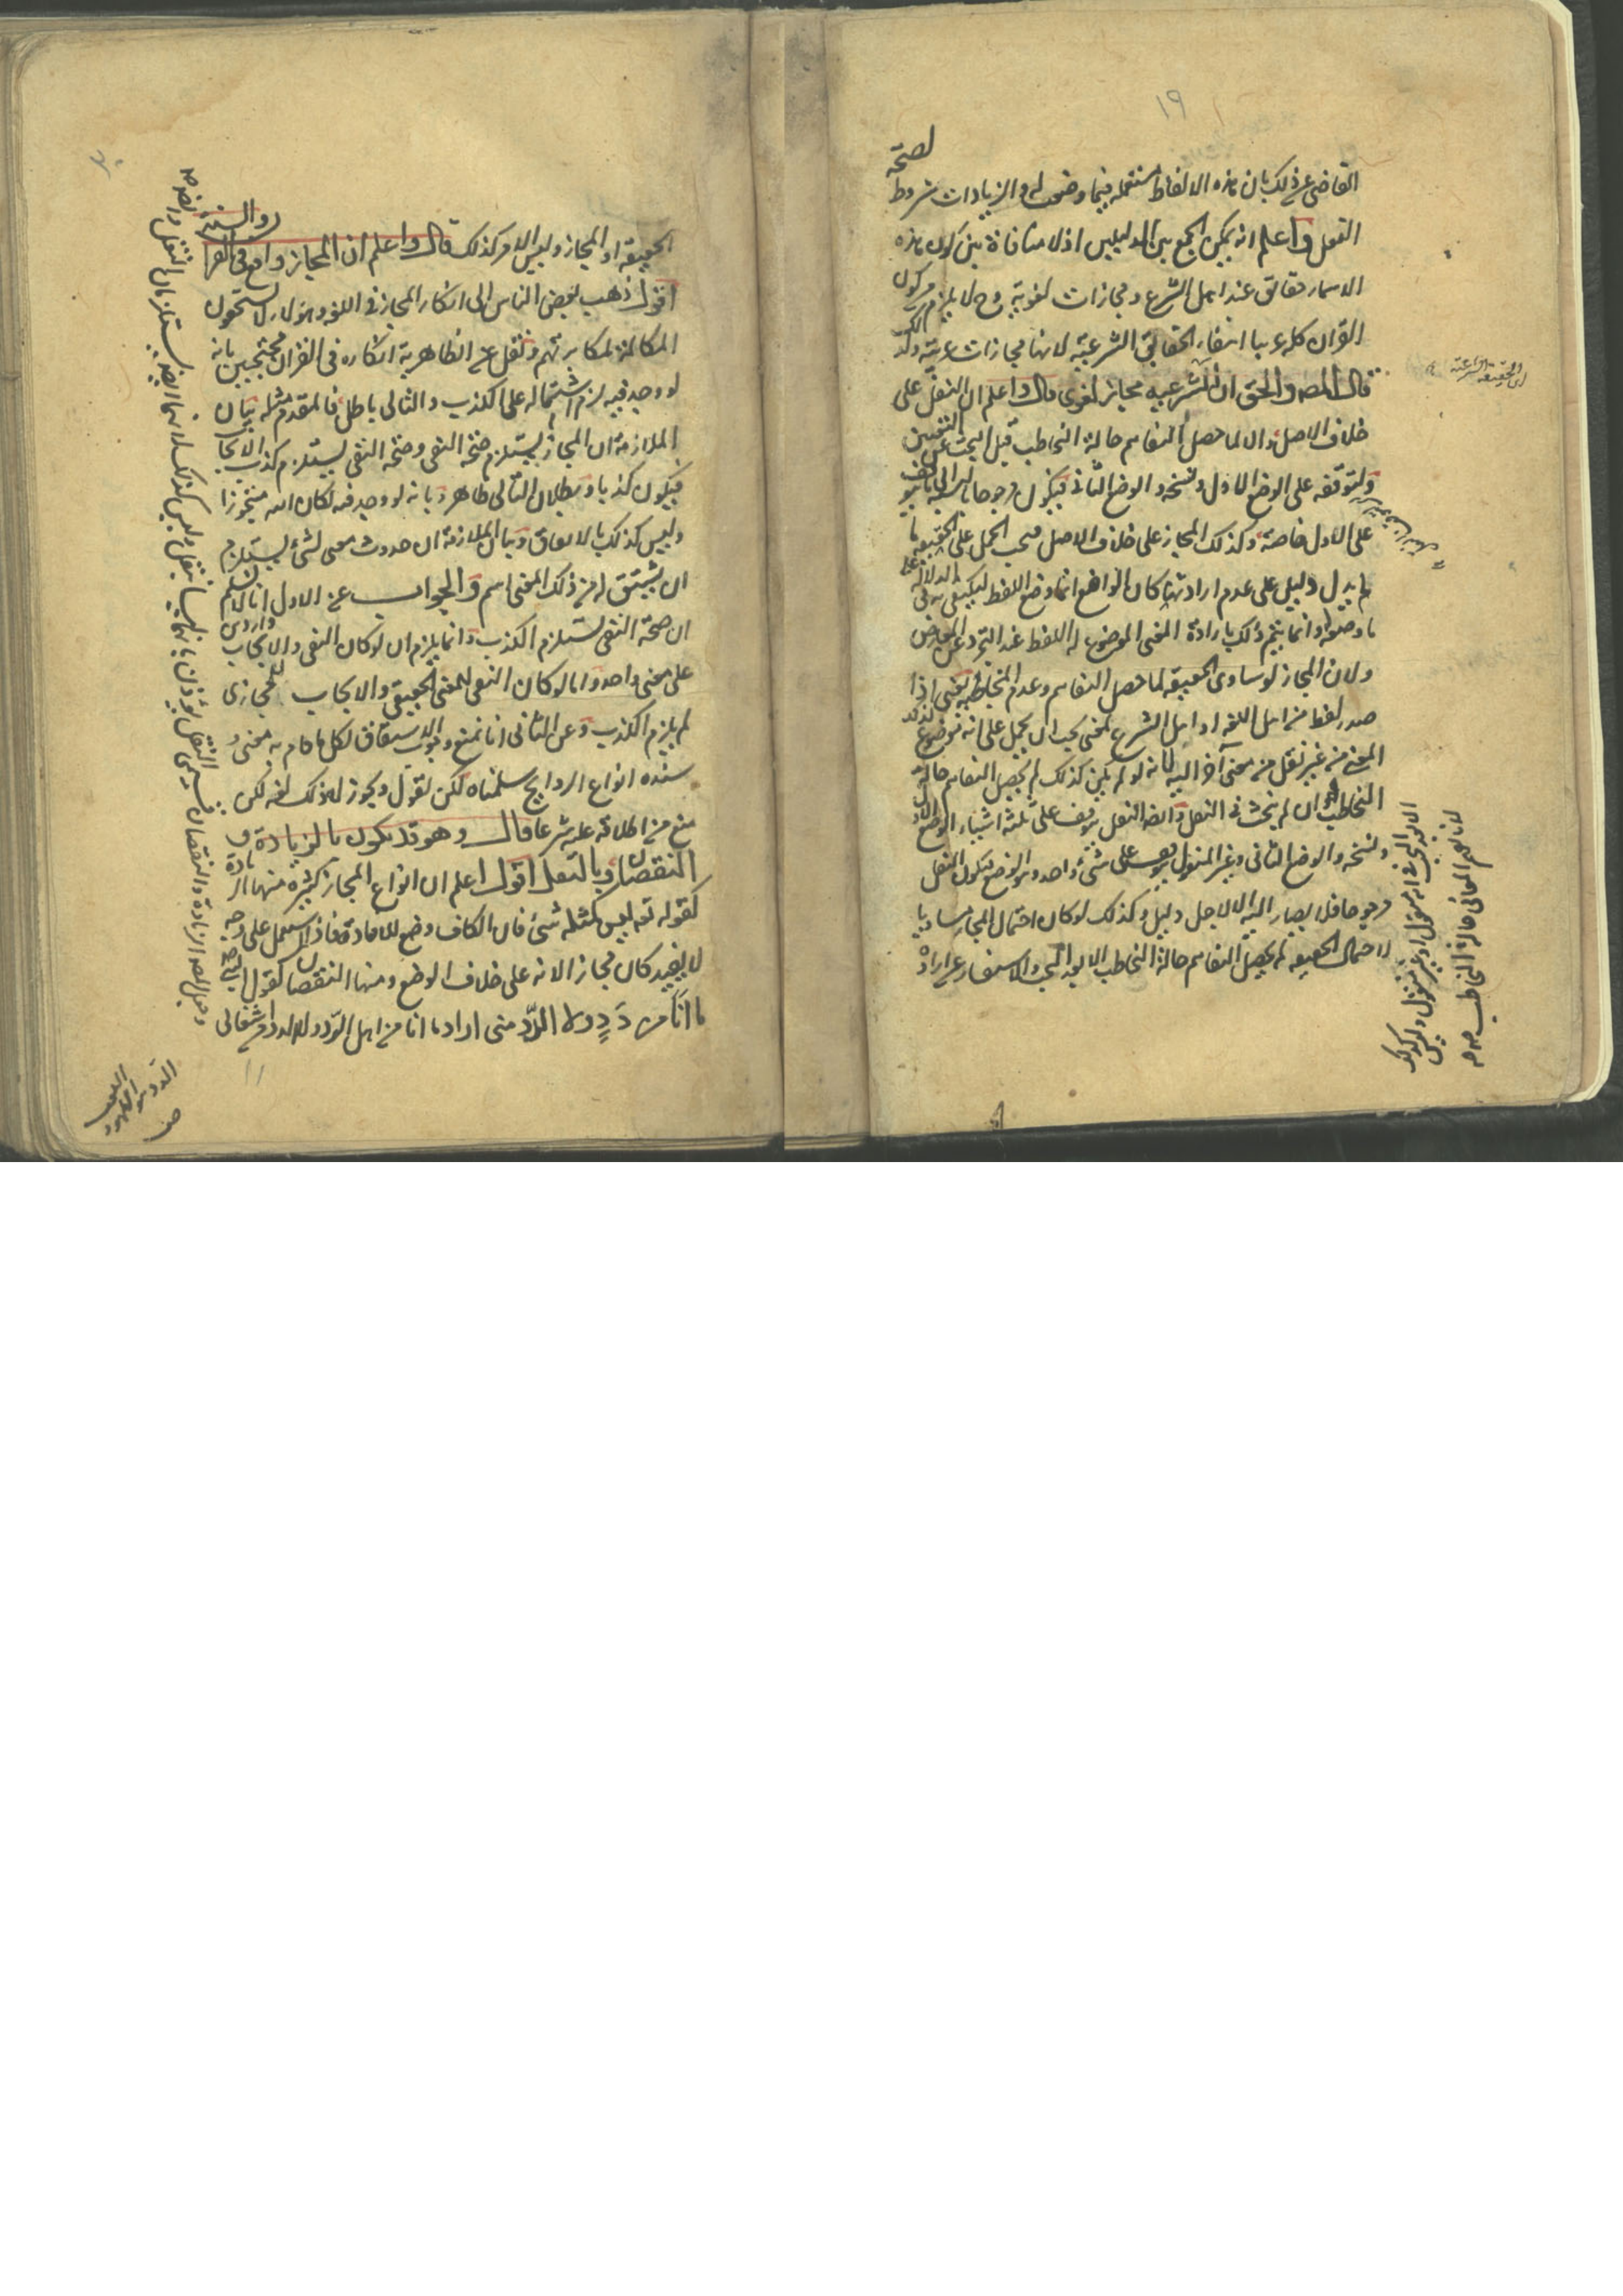 ١٩
القاضى عن ذلك بان هذه الالفاظ مستعملة فيما وضعت له والزيادات شروط لصحة
الفعل واعلم انه يمكن الجمع بين الدليلين اذ لا منافاة بين كون هذه
الاسماء حقائق عند اهل الشرع ومجازات لغوية وح لا يلزم من كون
القرآن كله عربيا انتفاء الحقائق الشرعية لانها مجازات عربية
قال المصه والحق ان الشرعيه مجاز لغوى قال واعلم ان النقل على
خلاف الاصل والا لما حصل التفاهم حالة التخاطب قبل البحث عن التغيير
ولتوقفه على الوضع الاول ونسخه والوضع الثانى فيكون مرجوحا بالنسبة الى ما يتوقف
على الاول خاصة وكذلك المجاز على خلاف الاصل فيجب الحمل على الحقيقة ما
لم يدل دليل على عدم ارادتها كان الواضع انما وضع اللفظ ليكتفى به فى الدلالة على
ما وضعه له وانما يتم ذلك بارادة المعنى الموضوع له اللفظ عند التجرد عن العوارض
ولان المجاز لو ساوى الحقيقه لما حصل التفاهم وعدم التخاطب يعنى اذا
صدر لفظ من اهل اللغه او اهل الشرع لمعنى يجب ان يحمل على انه موضوع لذلك
المعنى من غير نقل من معنى آخر اليه لانه لو لم يكن كذلك لم يحصل التفاهم حالة
التخاطب ان لم يبحث فى النقل وايضا النقل يتوقف على ثلثة اشياء الوضع الاول
ونسخه والوضع الثانى وغير المنقول يتوقف على شئ واحد وهو الوضع فيكون النقل
مرجوحا فلا يصار اليه الا لاجل دليل وكذلك لو كان احتمال المجاز مساويا
لاحتمال الحقيقه لم يحصل التفاهم حالة التخاطب الا بعد البحث والاستفسار عن ارادة
اى الحقيقة الشرعية
لانا نفهم المعانى حالة التخاطب
الحقيقه او المجاز وليس الامر كذلك قال واعلم ان المجاز واقع فى القرآن والسنة
اقول ذهب بعض الناس الى انكار المجاز فى اللغه وهؤلاء لا يستحقون
المكالمة لمكابرتهم ونقل عن الظاهرية انكاره فى القرآن محتجين بانه
لو وجد فيه لزم اشتماله على الكذب والتالى باطل فالمقدم مثله بيان
الملازمة ان المجاز يستلزم صحة النفى وصحة النفى يستلزم كذب الايجاب
فيكون كذبا وبطلان التالى ظاهر وبانه لو وجد فيه لكان الله متجوزا
وليس كذلك بالاتفاق وبيان الملازمة ان حدوث معنى لشئ يستلزم
ان يشتق له من ذلك المعنى اسم والجواب عن الاول انا لا نسلم
ان صحة النفى تستلزم الكذب وانما يلزم ان لو كان النفى والايجاب واردين
على معنى واحد واما لو كان النفى للمعنى الحقيقى والايجاب للمجازى
لم يلزم الكذب وعن الثانى انا نمنع وجوب الاشتقاق لكل ما قام به معنى و
سنده انواع الروايح سلمناه لكن نقول ويجوز له ذلك لغه لكن
منع من اطلاقه عليه شرعا قال وهو قد يكون بالزيادة و
النقصان وبالنقل اقول اعلم ان انواع المجاز كثيرة منها الزيادة
كقوله تعه ليس كمثله شئ فان الكاف وضع للافادة فاذا استعمل على وجه
لا يفيد كان مجازا لانه على خلاف الوضع ومنها النقصان كقول النبى صه
ما انا من دَدٍ ولا الدَّد منى اراد ما انا من اهل الدد ولا الدد من اشغالى
الدد هو اللهو واللعب